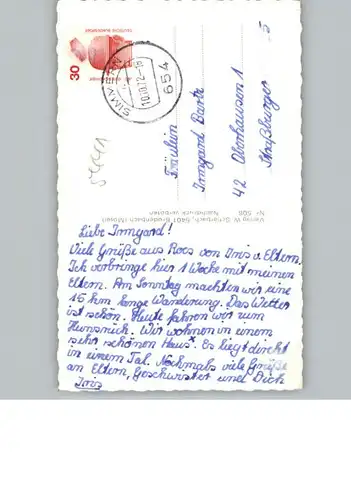 Liebe Irmgard!
Viele Grüße aus Roes von Iris u. Eltern.
Ich verbringe hier 1 Woche mit meinen
Eltern. Am Sonntag machten wir eine
16 km lange Wanderung. Das Wetter
ist schön. Heute fahren wir zum
Hunsrück. Wir wohnen in einem
sehr schönen Haus*. Es liegt direkt
in einem Tal. Nochmals viele Grüße
an Eltern, Geschwister und Dich
Iris
30
DEUTSCHE BUNDESPOST
654
10.10.72-18
Fräulein
Irmgard Bartz
42 Oberhausen 1
Straßburger 5
Nachdruck verboten
Nr. 506